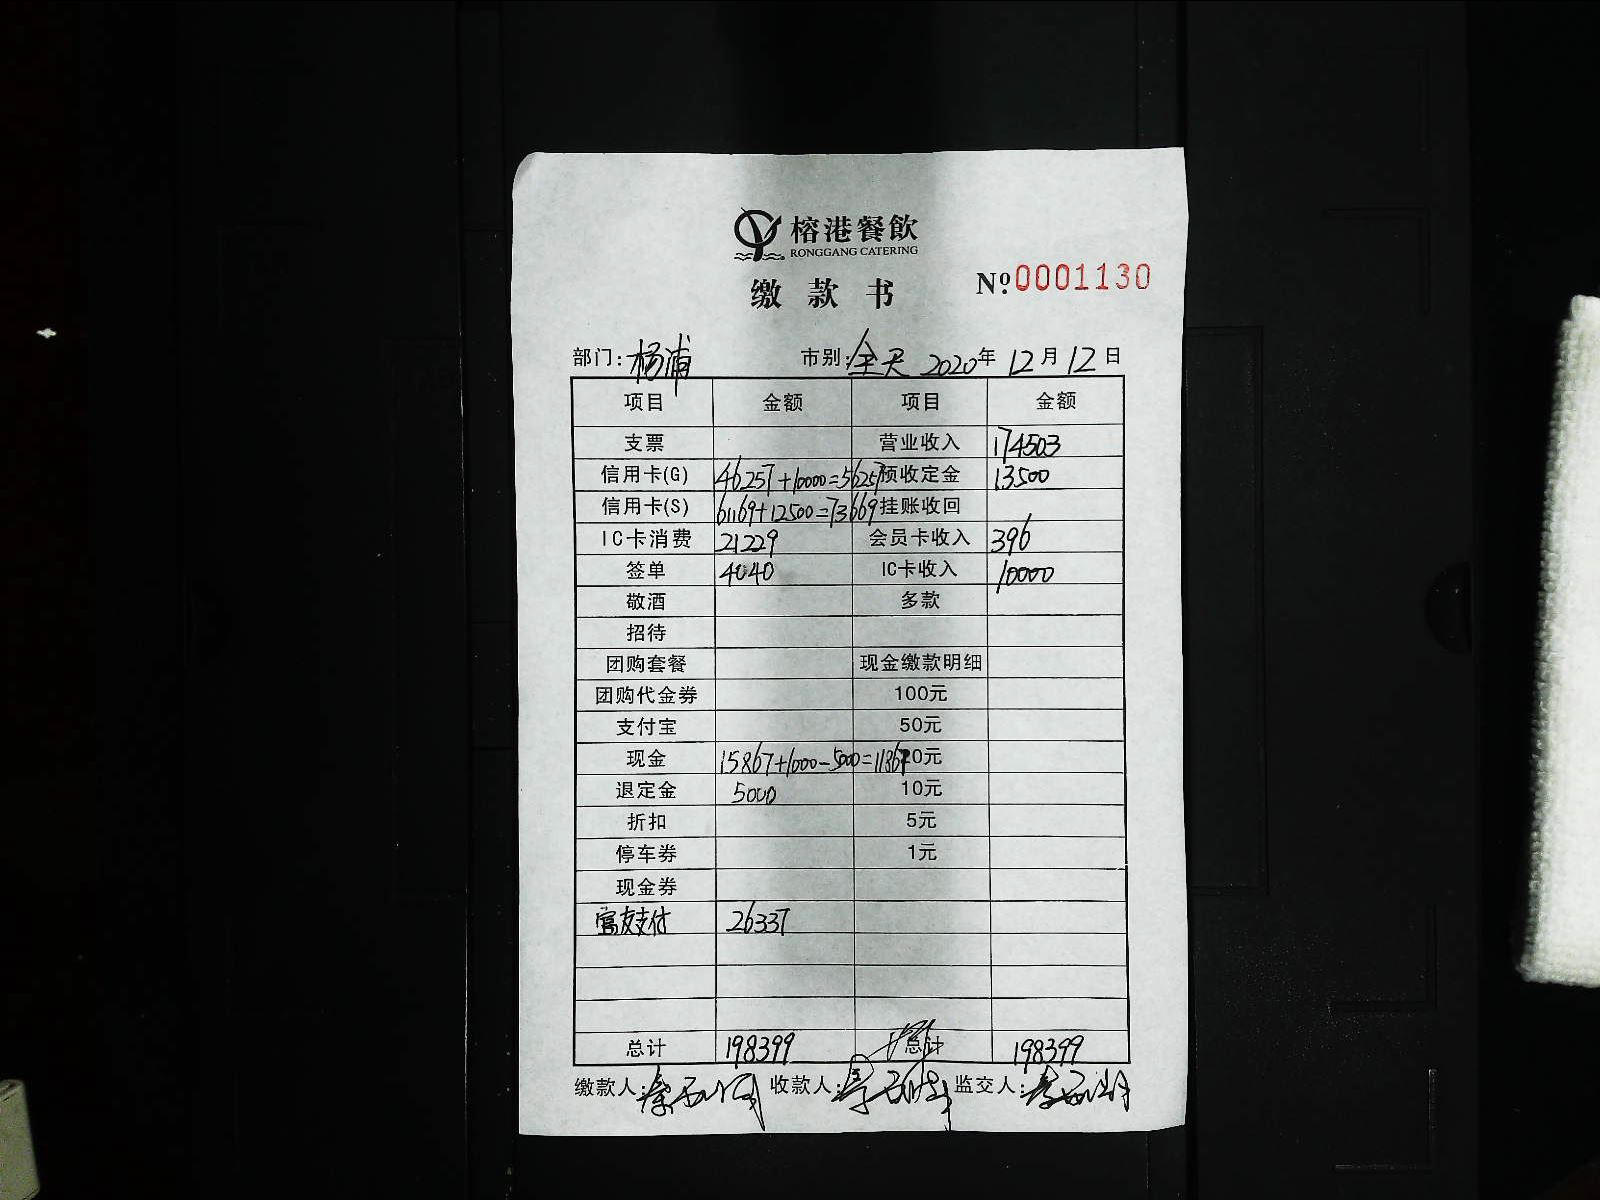 榕港餐飲
RONGGANG CATERING
缴款书
№0001130
部门:杨浦 市别:全天 2020年12月12日
项目 金额 项目 金额
支票 营业收入 174503
信用卡(G) 46257+10000=56257 预收定金 13500
信用卡(S) 61169+12500=73669 挂账收回
IC卡消费 21229 会员卡收入 396
签单 4040 IC卡收入 10000
敬酒 多款
招待
团购套餐 现金缴款明细
团购代金券 100元
支付宝 50元
现金 15867+1000-5000=11867 20元
退定金 5000 10元
折扣 5元
停车券 1元
现金券
富友支付 26337
总计 198399 总计 198399
缴款人: 收款人: 监交人: